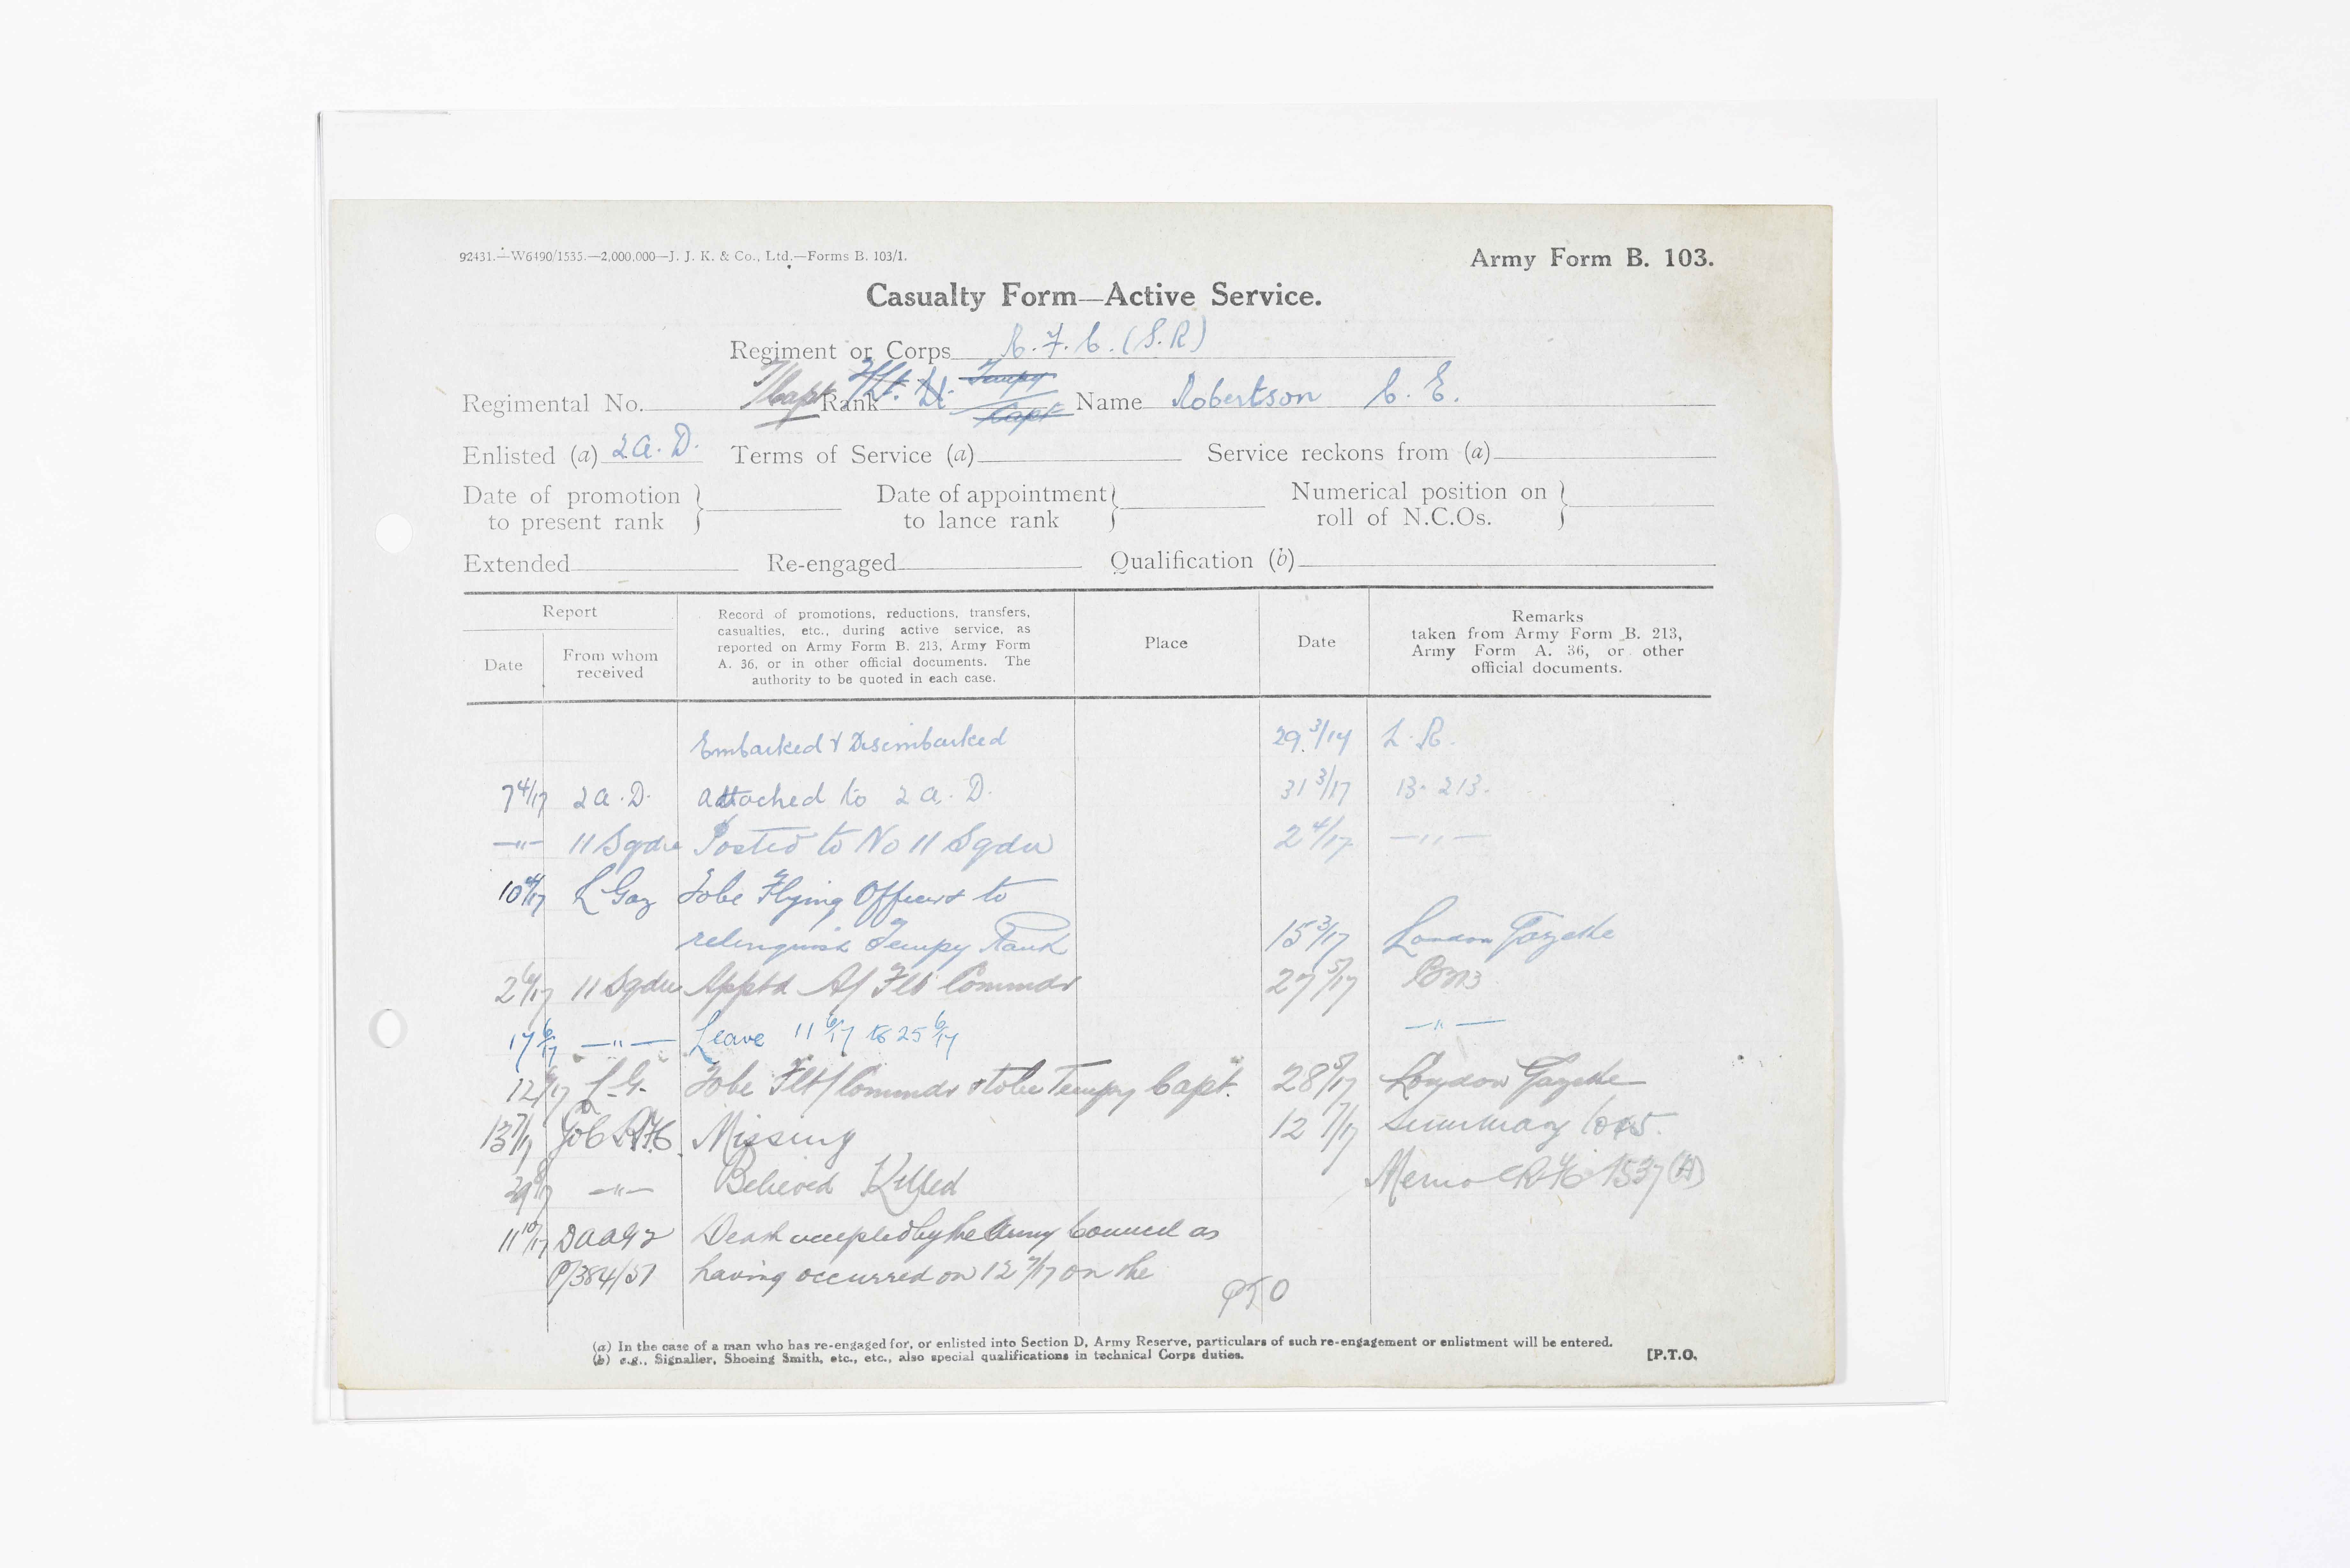 92431.—W6490/1535.—2,000,000—J. J. K. & Co., Ltd.—Forms B. 103/1.
Army Form B. 103.
Casualty Form—Active Service.
Regiment or Corps R.F.C. (S.R)
Regimental No. T/Capt Rank Lt. Tempy Capt Name Robertson C. E.
Enlisted (a) 2 A. D. Terms of Service (a) Service reckons from (a)
Date of promotion to present rank } Date of appointment to lance rank } Numerical position on roll of N.C.Os. }
Extended Re-engaged Qualification (b)
Report
Date
From whom received
Record of promotions, reductions, transfers,
casualties, etc., during active service, as
reported on Army Form B. 213, Army Form
A. 36, or in other official documents. The
authority to be quoted in each case.
Place
Date
Remarks
taken from Army Form B. 213,
Army Form A. 36, or other
official documents.
Embarked & Disembarked 29 3/17 L. R.
7 4/17 2 A. D. attached to 2 A. D. 31 3/17 B. 213.
—"— 11 Sqdn Posted to No 11 Sqdn 2 4/17 —"—
10 4/17 L Gaz To be Flying Officer & to
relinquish Tempy Rank 15 3/17 London Gazette
2 6/17 11 Sqdn Apptd A/ Flt Commdr 27 5/17 B213
17 6/17 —"— Leave 11 6/17 to 25 6/17 —"—
12 6/17 L.G. To be Flt/Commdr & to be Tempy Capt. 28 5/17 London Gazette
13 7/17 GOC RFC Missing 12 7/17 Summary Cas.
29 8/17 —"— Believed Killed Memo RFC 1537 (A)
11 10/17 DAAG 2 Death accepted by the Army Council as
P/384/51 having occurred on 12 7/17 on the
PTO
(a) In the case of a man who has re-engaged for, or enlisted into Section D, Army Reserve, particulars of such re-engagement or enlistment will be entered.
(b) e.g., Signaller, Shoeing Smith, etc., etc., also special qualifications in technical Corps duties.
[P.T.O.